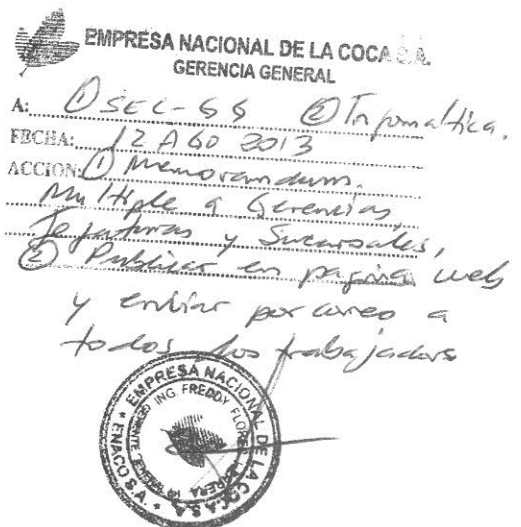 EMPRESA NACIONAL DE LA COCA S.A.
GERENCIA GENERAL
A: ① SEC-GG ② Informática.
FECHA: 12 AGO 2013
ACCION: ① Memorandum.
Multiple a Gerencias,
Jefaturas y Sucursales,
② Publicar en pagina web
y enviar por correo a
todos los trabajadores
EMPRESA NACIONAL DE LA COCA S.A.
* ENACO S.A. *
ING. FREDDY FLORES
GERENTE